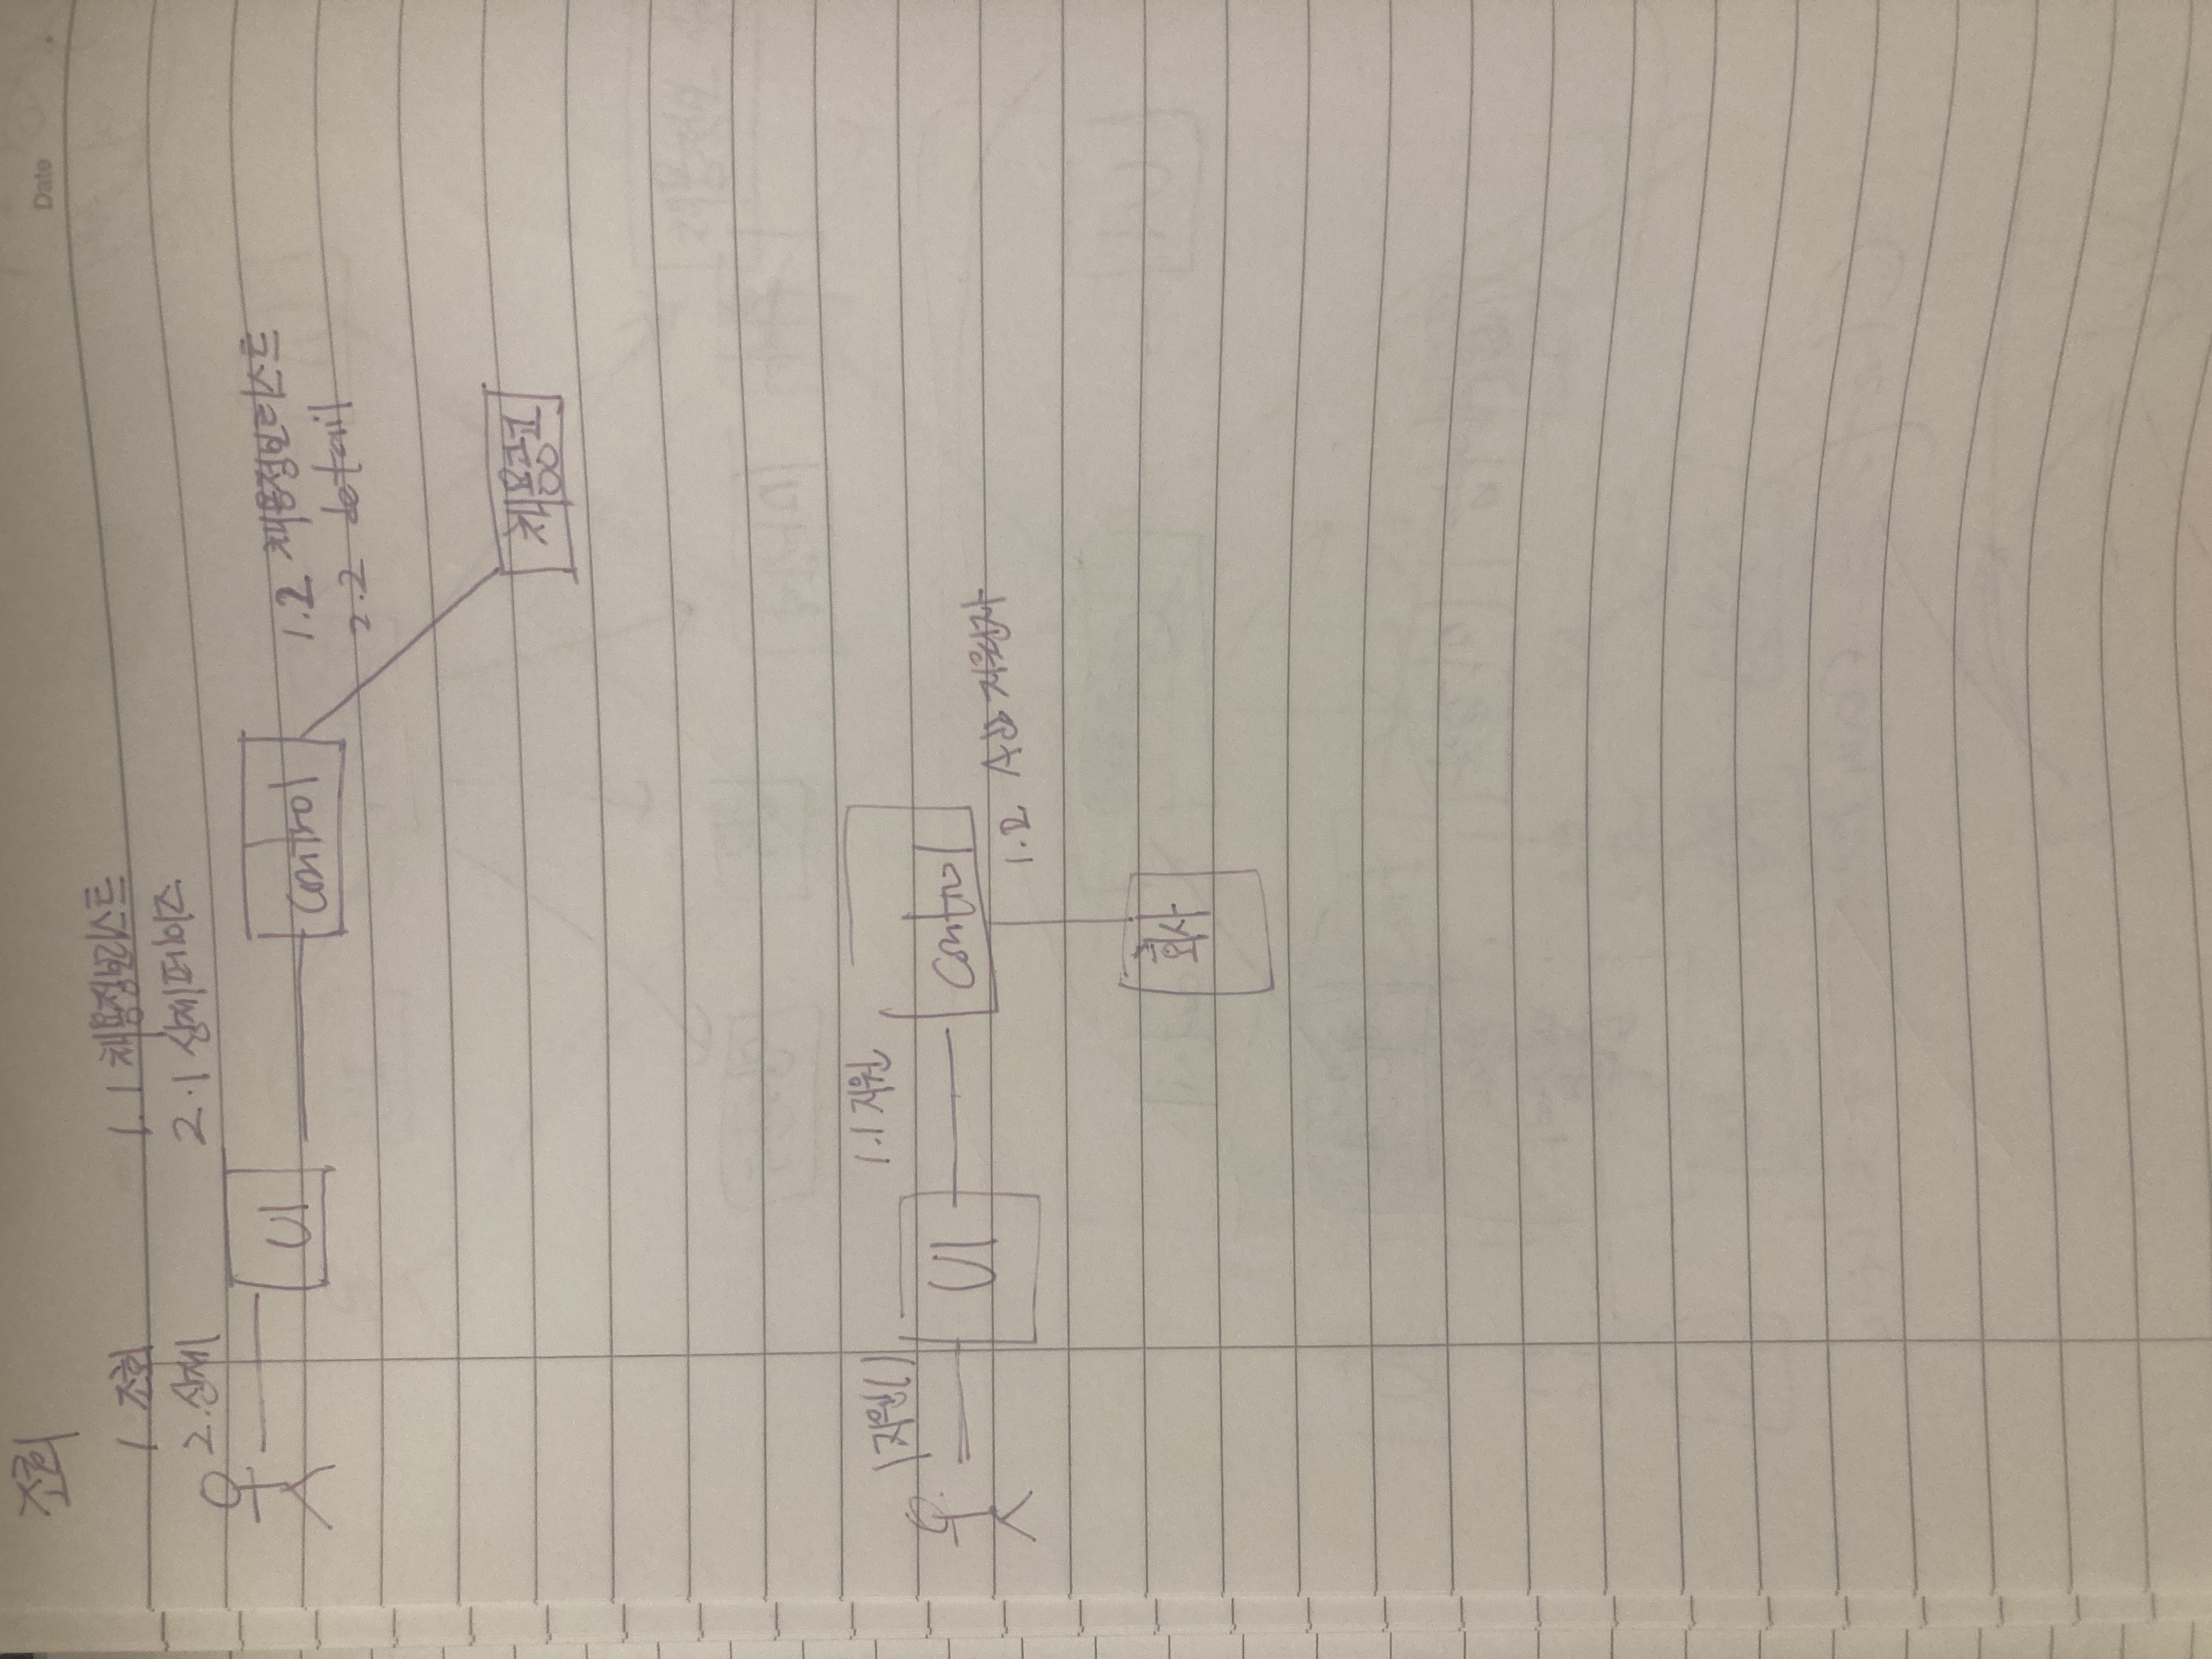 조회
Date
1 조회
2. 상세
1.1 채용정보리스트
2.1 상세페이즈
UI
control
1.2 채용정보리스트
2.2 detail
채용공고
1 지원()
1.1 지원
UI
control
1.2 지원자
회사